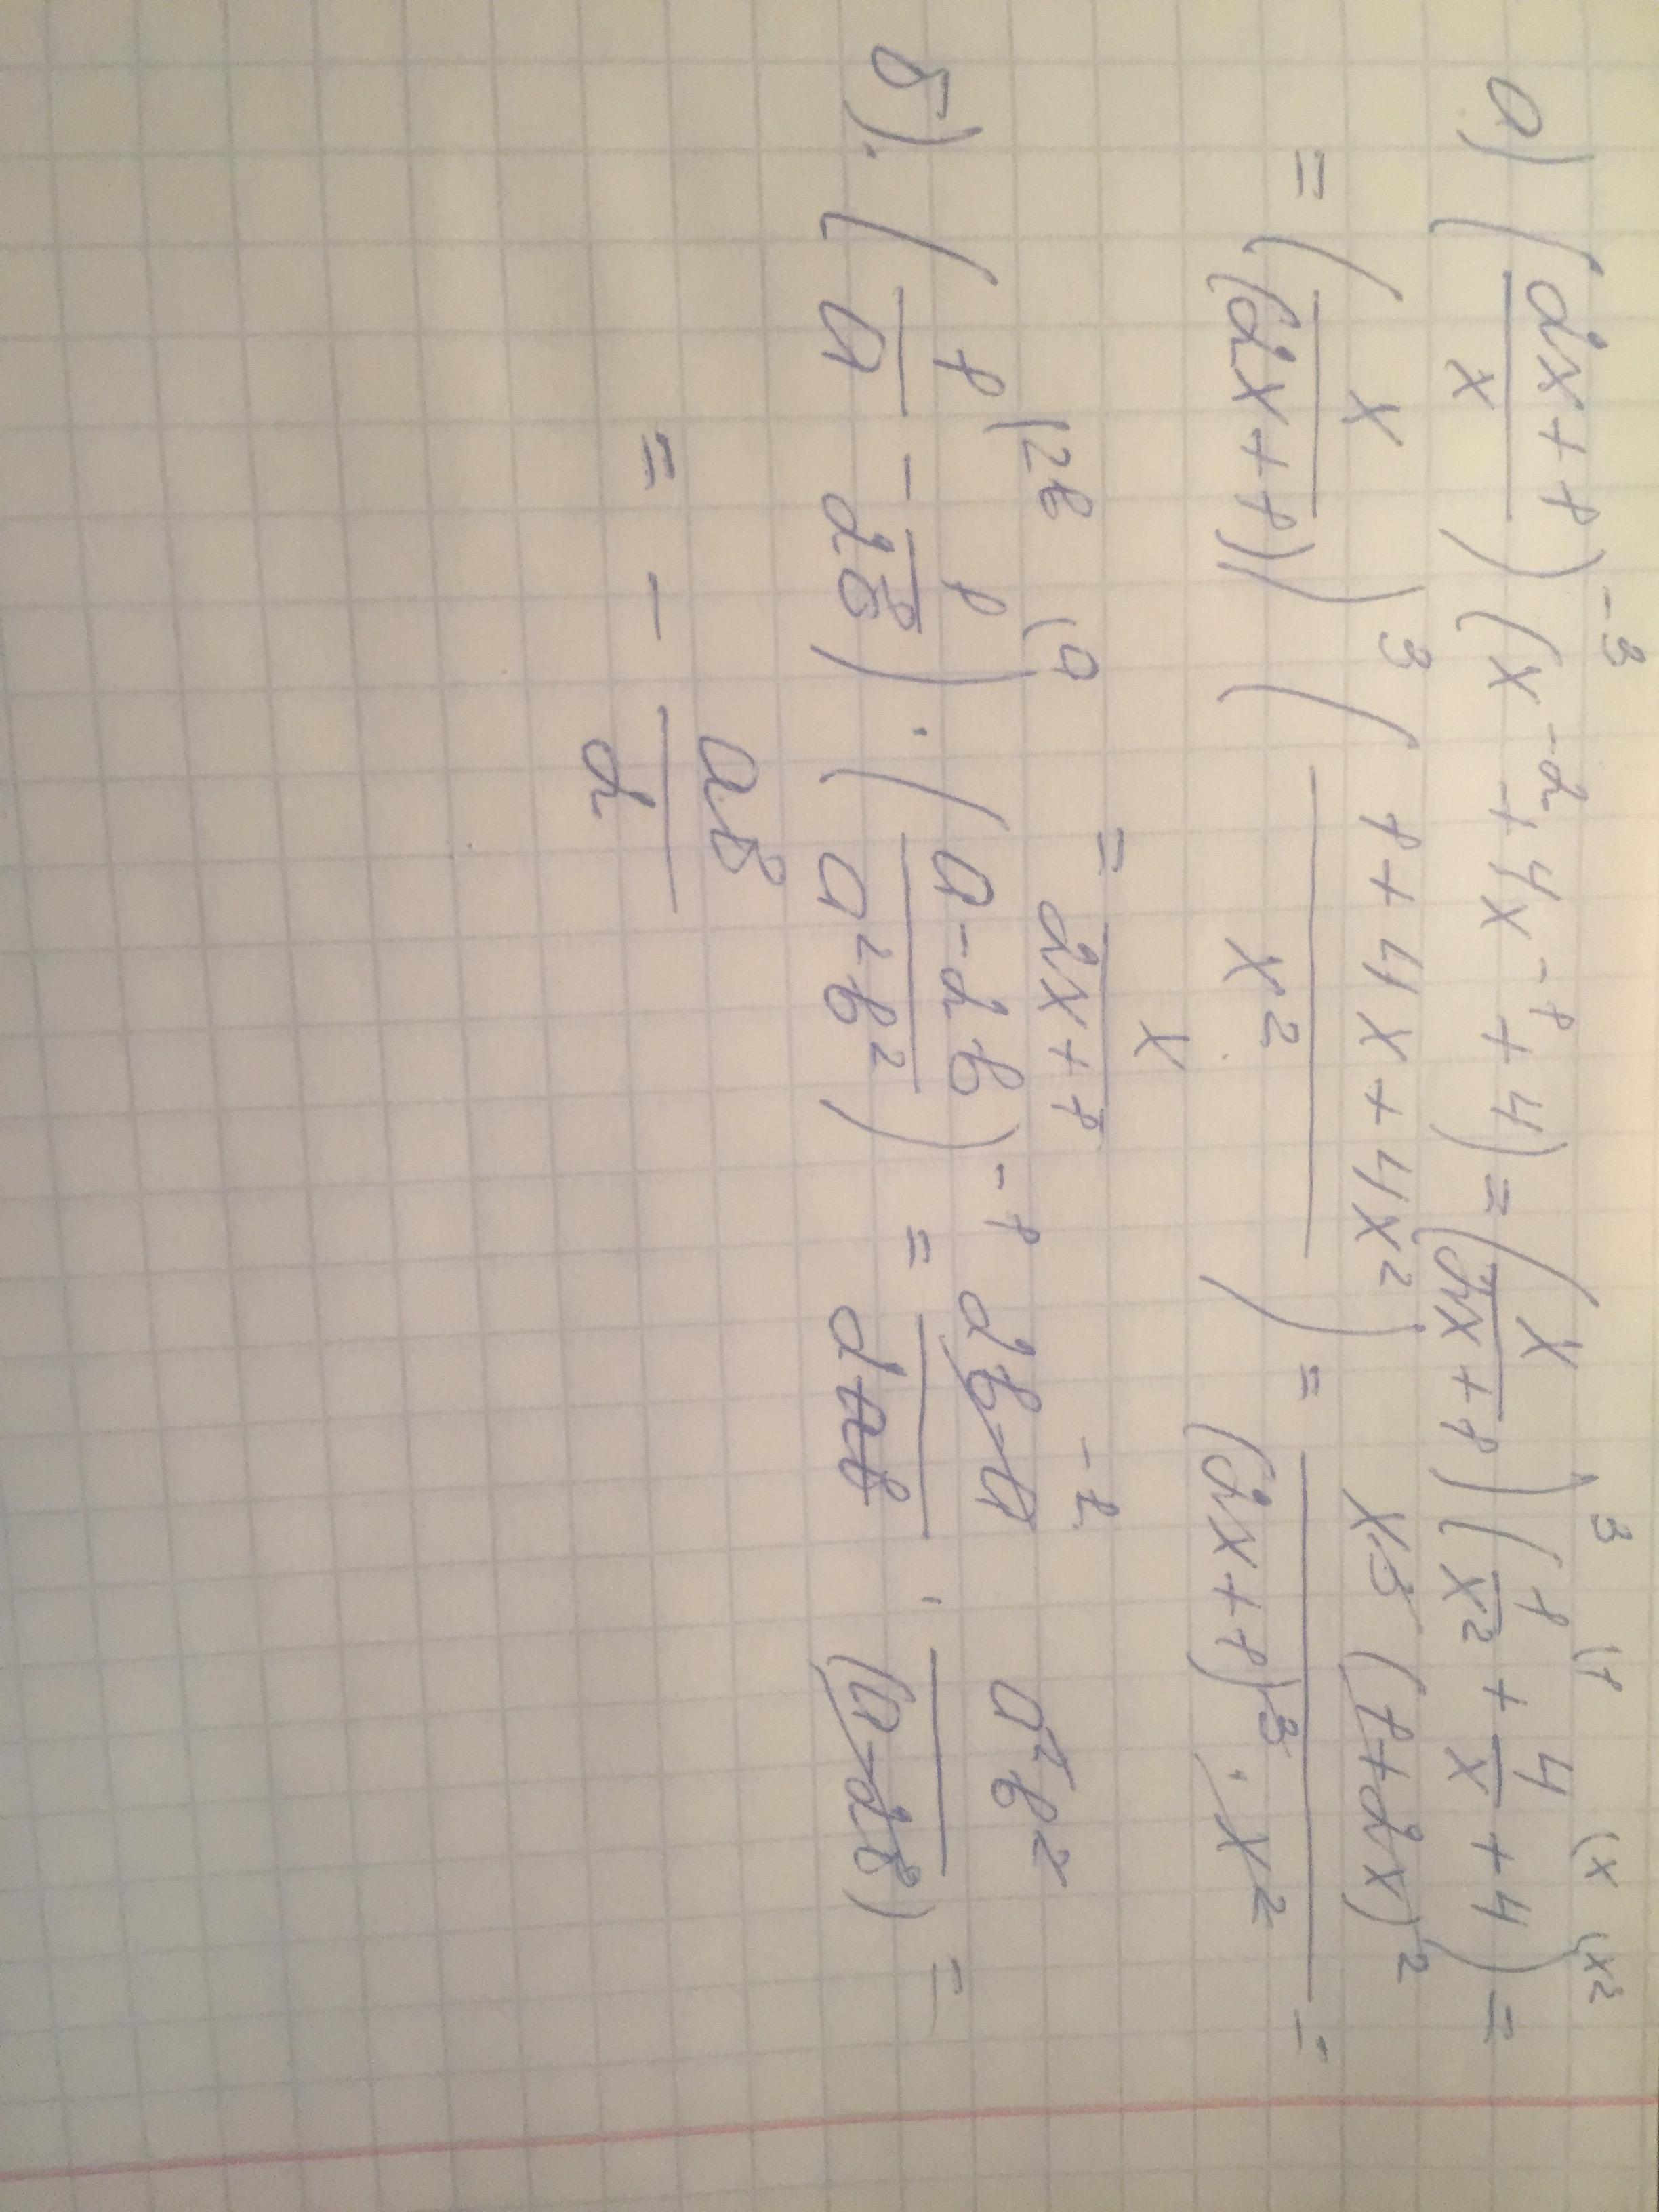 а) ((2x+1)/x)^-3 (x^-2 + 4x^-1 + 4) = (x/(2x+1))^3 (1/x^2 + 4/x + 4) = (1 (x (x^2
= (x/(2x+1))^3 ((1+4x+4x^2)/x^2) = (x^3 (1+2x)^2)/((2x+1)^3 · x^2) =
= x/(2x+1)
б). (1/a - 1/2в) · ((a-2в)/(a^2в^2))^-1 = (2в-a)/(2ав) · (a^2в^2)/(a-2в) = (2в (a -1
= - ав/2